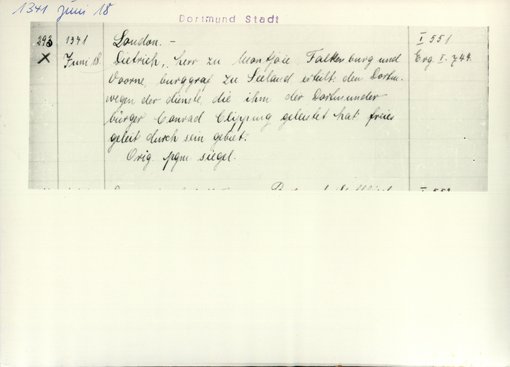 1341 Juni 18
Dortmund Stadt
293 1341 London. - I 551
X Juni 18. Dietrich, Herr zu Montjoie, Falkenburg und Erg. I. 744.
Voorne, burggraf zu Seeland erteilt den Dortm.
wegen der dienste die ihm der Dortmunder
bürger Conrad Clipping geleistet hat freies
geleit durch sein gebiet.
Orig. pgm. siegel.